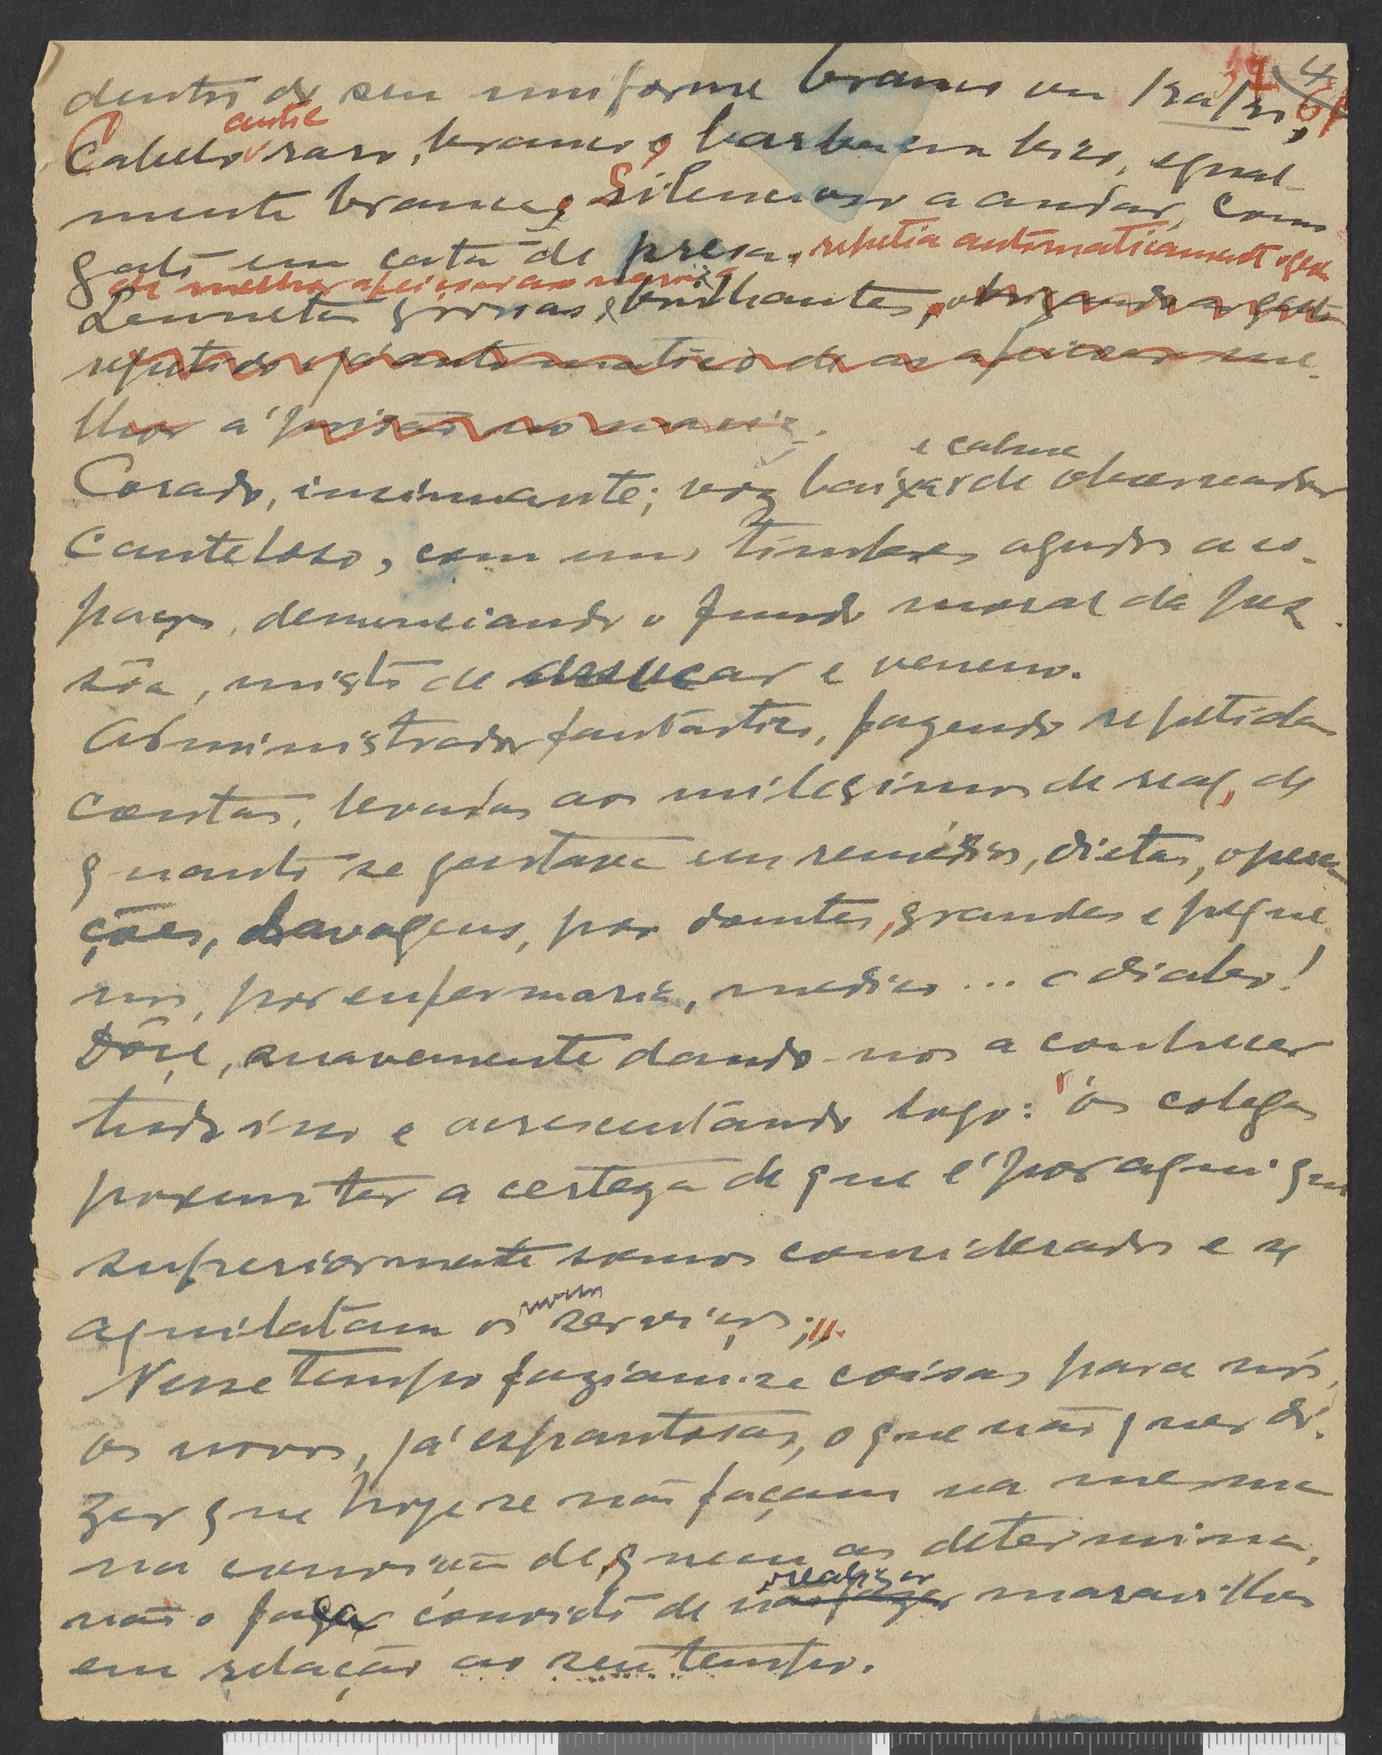 4
61
dentro do seu uniforme branco ou kaki,
cabelo raro, branco, barba em bico, egual-
mente branca, Silencioso a andar, como
gato em cata de presa, repetia automaticamente o gesto
de melhor afeiçoar ao nariz
Lunetas grossas, brilhantes, obrigando a gesto
repetido e automatico de as afeiçoar me-
lhor á prisão no nariz.
e calma
Corado, insinuante; voz baixa de observador
cauteloso, com uns timbres agudos a es-
paços, denunciando o fundo moral da pes-
sôa, misto de assucar e veneno.
Administrador fantástico, fazendo repetidas
contas, levadas ao milesimo de real, do
quanto se gastava em remédios, dietas, opera-
ções, lavagens, por doentes, grandes e peque-
nos, por enfermaria, medico... o diabo!
Dôce, suavemente dando-nos a conhecer
tudo isso e acrescentando logo: "os colegas
podem ter a certeza de que é por aqui que
superiormente somos considerados e se
aquilatam os nossos serviços;"
Nesse tempo faziam-se coisas para nós,
os novos, já espantosas, o que não quer di-
zer que hoje se não façam na mesma
na convicção de, quem as determina,
realizar
não o faça convicto de não fazer maravilhas
em relação ao seu tempo.